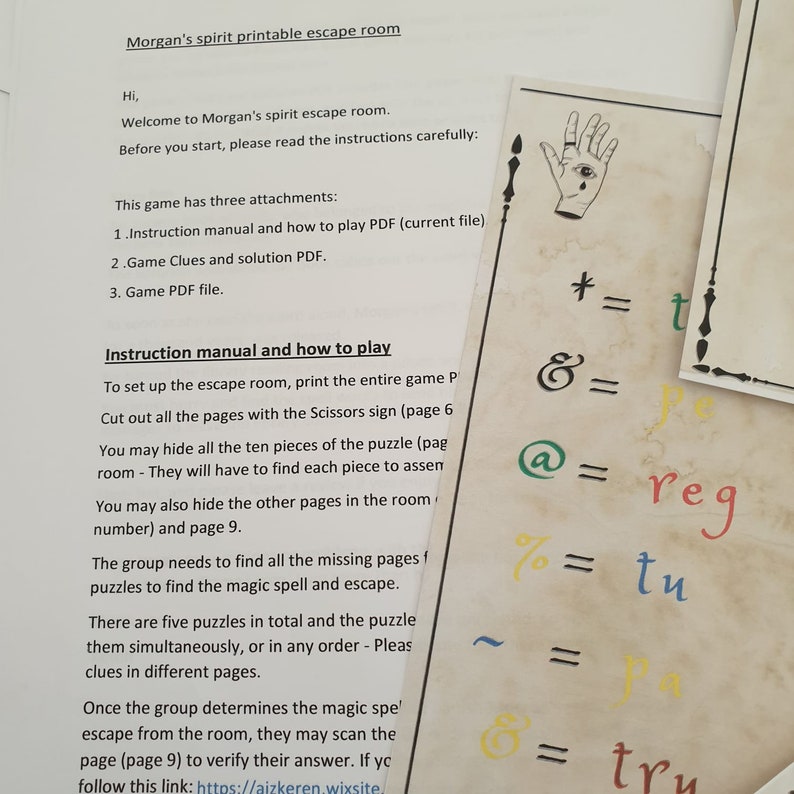 Morgan's spirit printable escape room
Hi,
Welcome to Morgan's spirit escape room.
Before you start, please read the instructions carefully:
This game has three attachments:
1 .Instruction manual and how to play PDF (current file)
2 .Game Clues and solution PDF.
3. Game PDF file.
Instruction manual and how to play
To set up the escape room, print the entire game P
Cut out all the pages with the Scissors sign (page 6
You may hide all the ten pieces of the puzzle (pag
room - They will have to find each piece to assem
You may also hide the other pages in the room
number) and page 9.
The group needs to find all the missing pages f
puzzles to find the magic spell and escape.
There are five puzzles in total and the puzzle
them simultaneously, or in any order - Pleas
clues in different pages.
Once the group determines the magic spel
escape from the room, they may scan the
page (page 9) to verify their answer. If yo
follow this link: https://aizkeren.wixsite.
* = t
& = pe
@ = reg
% = tu
~ = pa
& = tru